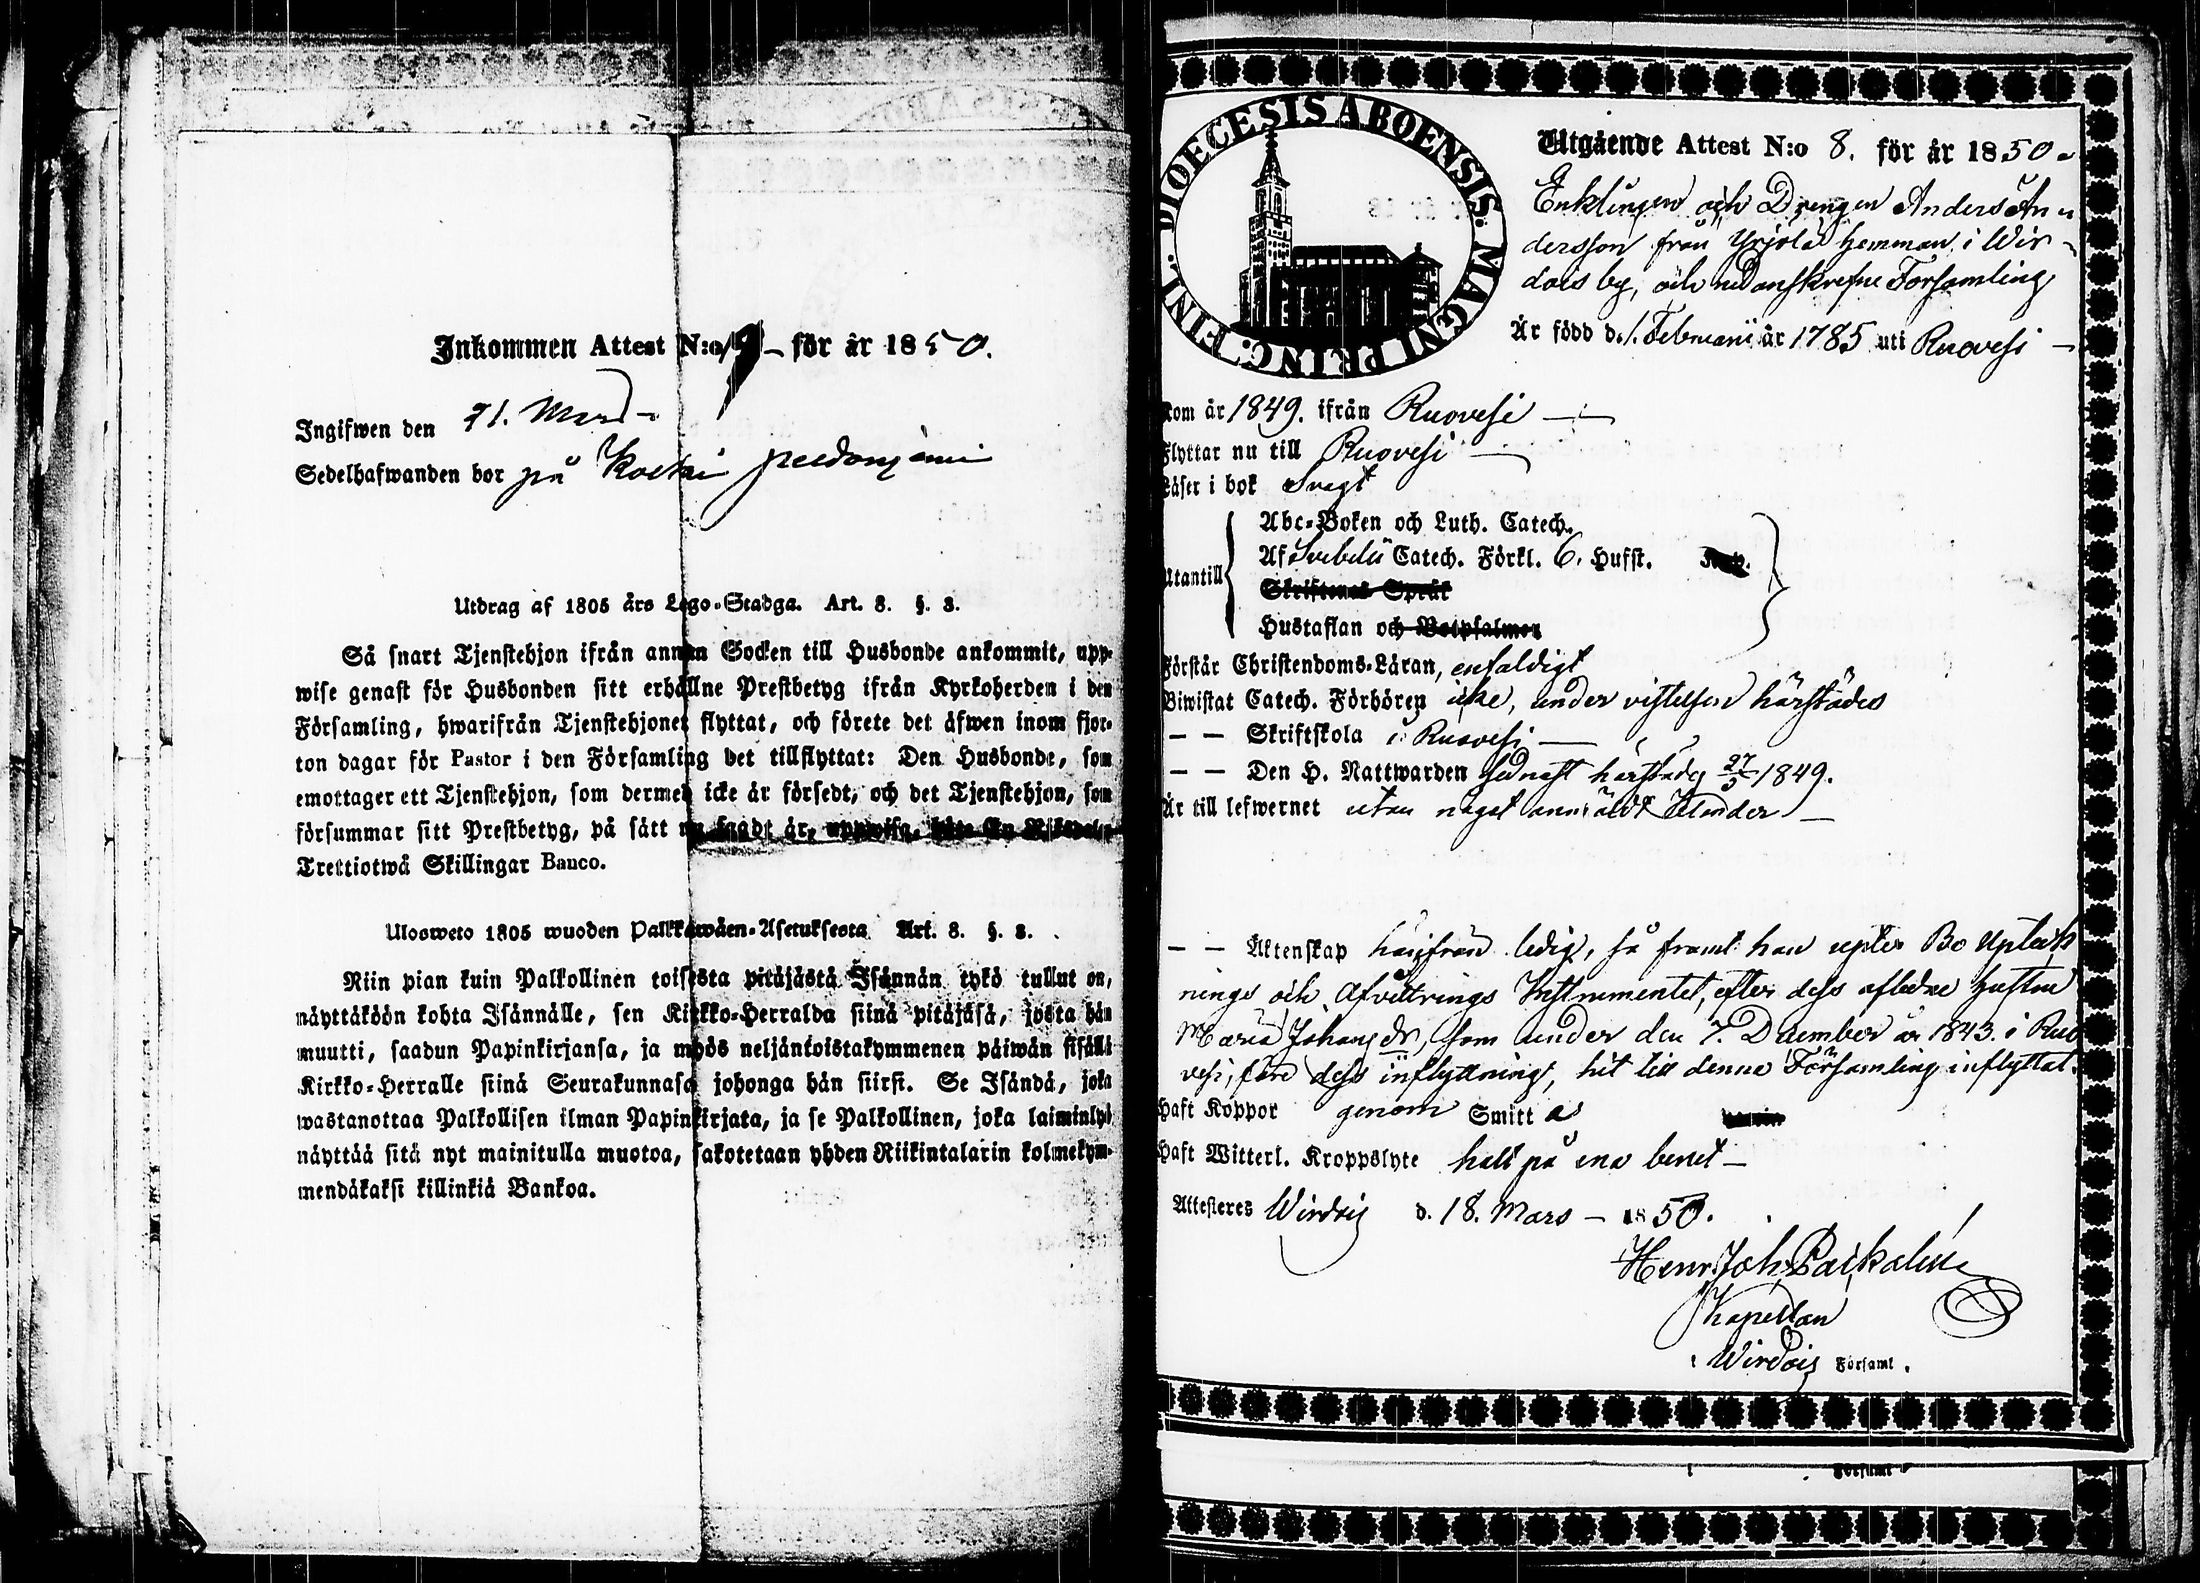 Inkommen Attest N:o 19 – för år 1850.
Ingifwen den 21. Mars –
Sedelhafwanden bor på Koski
Utdrag af 1805 års Lego-Stadga. Art. 8. §. 3.
Så snart Tjenstehjon ifrån annan Socken till Husbonde ankommit, upp-
wise genast för Husbonden sitt erhållne Prestbetyg ifrån Kyrkoherden i den
Församling, hwarifrån Tjenstehjonet flyttat, och förete det äfwen inom fjor-
ton dagar för Pastor i den Församling det tillflyttat: Den Husbonde, som
emottager ett Tjenstehjon, som dermed icke är försedt, och det Tjenstehjon, som
försummar sitt Prestbetyg, på sätt nu sagdt är, uppwisa, böte En Riksdaler
Trettiotwå Skillingar Banco.
Ulosweto 1805 wuoden Palkkawäen-Asetuksesta Art. 8. §. 3.
Niin pian kuin Palkollinen toisesta pitäjästä Isännän tykö tullut on,
näyttäköön kohta Isännälle, sen Kirkko-Herralda siinä pitäjäsä, josta hän
muutti, saadun Papinkirjansa, ja myös neljäntoistakymmenen päiwän sisällä
Kirkko-Herralle siinä Seurakunnasa johonga hän siirsi. Se Isändä, joka
wastanottaa Palkollisen ilman Papinkirjata, ja se Palkollinen, joka laiminlyö
näyttää sitä nyt mainitulla muotoa, sakotetaan yhden Riikintalarin kolmekym-
mendäkaksi killinkiä Bankoa.
DIOECESIS ABOENSIS. MAGNI PRINC: FINL.
Utgående Attest N:o 8. för år 1850.
Enklingen och Drengen Anders An
dersson från Yrjölä hemman i Wir-
dois by, och nedanskrefne Församling
Är född d. 1. Februarii år 1785 uti Ruovesi
Kom år 1849. ifrån Ruovesi
Flyttar nu till Ruovesi
Läser i bok Svagt
Utantill
Abc-Boken och Luth. Catech.
Af Svebelii Catech. Förkl. 6. Hufst.
Skriftenes Språk
Hustaflan och Botpsalmer
Förstår Christendoms-Läran, enfaldigt
Biwistat Catech. Förhören icke, under vistelsen härstädes
– – Skriftskola i Ruovesi
– – Den H. Nattwarden sednast härstädes 27/5 1849.
Är till lefwernet utan något anmäldt Klander
– – Äktenskap härifrån ledig, så framt han upter Bo Uptek
nings och Afvittrings Instrumentet, efter dess aflidne hustru
Maria Johansdr, som under den 7. December år 1843. i Ruo
vesi, före dess inflyttning, hit till denna Församling inflyttat.
Haft Koppor genom Smitta
Haft Witterl. Kroppslyte halt på ena benet –
Attesteres Wirdois d. 18. Mars – 1850.
Henr. Joh.
Kapellan
i Wirdois Församl.
Församl